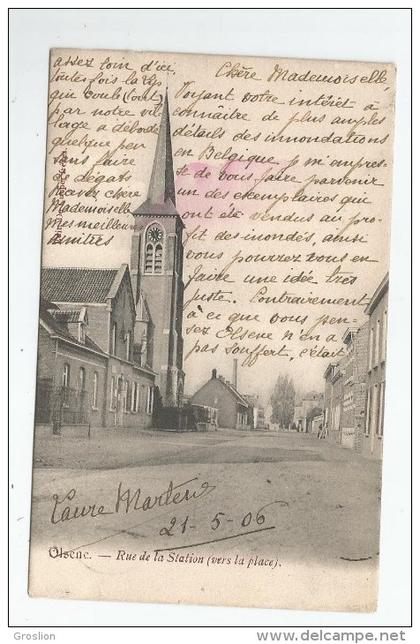 Chère Mademoiselle
Voyant votre intérêt à
connaitre de plus amples
détails des inondations
en Belgique je m'empres-
se de vous faire parvenir
un des exemplaires qui
ont été vendus au pro-
fit des inondés, ainsi
vous pourrez vous en
faire une idée très
juste. Contrairement
à ce que vous pen-
sez Olsene n'en a
pas souffert, c'était
assez loin d'ici
toutefois la Lys
qui coule tout
par notre vil-
lage a débordé
quelque peu
sans faire
de dégâts
Recevez chère
Mademoiselle
mes meilleures
amitiés
Laure Martens
21-5-06
Olsene. — Rue de la Station (vers la place).
© Groslion
www.delcampe.net